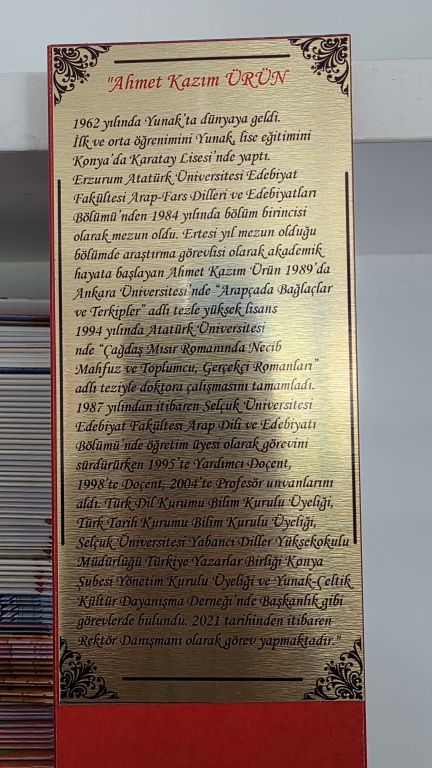 "Ahmet Kazım ÜRÜN
1962 yılında Yunak'ta dünyaya geldi.
İlk ve orta öğrenimini Yunak, lise eğitimini
Konya'da Karatay Lisesi'nde yaptı.
Erzurum Atatürk Üniversitesi Edebiyat
Fakültesi Arap-Fars Dilleri ve Edebiyatları
Bölümü'nden 1984 yılında bölüm birincisi
olarak mezun oldu. Ertesi yıl mezun olduğu
bölümde araştırma görevlisi olarak akademik
hayata başlayan Ahmet Kazım Ürün 1989'da
Ankara Üniversitesi'nde "Arapçada Bağlaçlar
ve Terkipler" adlı tezle yüksek lisans
1994 yılında Atatürk Üniversitesi
nde "Çağdaş Mısır Romanında Necib
Mahfuz ve Toplumcu, Gerçekçi Romanları"
adlı teziyle doktora çalışmasını tamamladı.
1987 yılından itibaren Selçuk Üniversitesi
Edebiyat Fakültesi Arap Dili ve Edebiyatı
Bölümü'nde öğretim üyesi olarak görevini
sürdürürken 1995'te Yardımcı Doçent,
1998'te Doçent, 2004'te Profesör unvanlarını
aldı. Türk Dil Kurumu Bilim Kurulu Üyeliği,
Türk Tarih Kurumu Bilim Kurulu Üyeliği,
Selçuk Üniversitesi Yabancı Diller Yüksekokulu
Müdürlüğü Türkiye Yazarlar Birliği Konya
Şubesi Yönetim Kurulu Üyeliği ve Yunak-Çeltik
Kültür Dayanışma Derneği'nde Başkanlık gibi
görevlerde bulundu. 2021 tarihinden itibaren
Rektör Danışmanı olarak görev yapmaktadır."